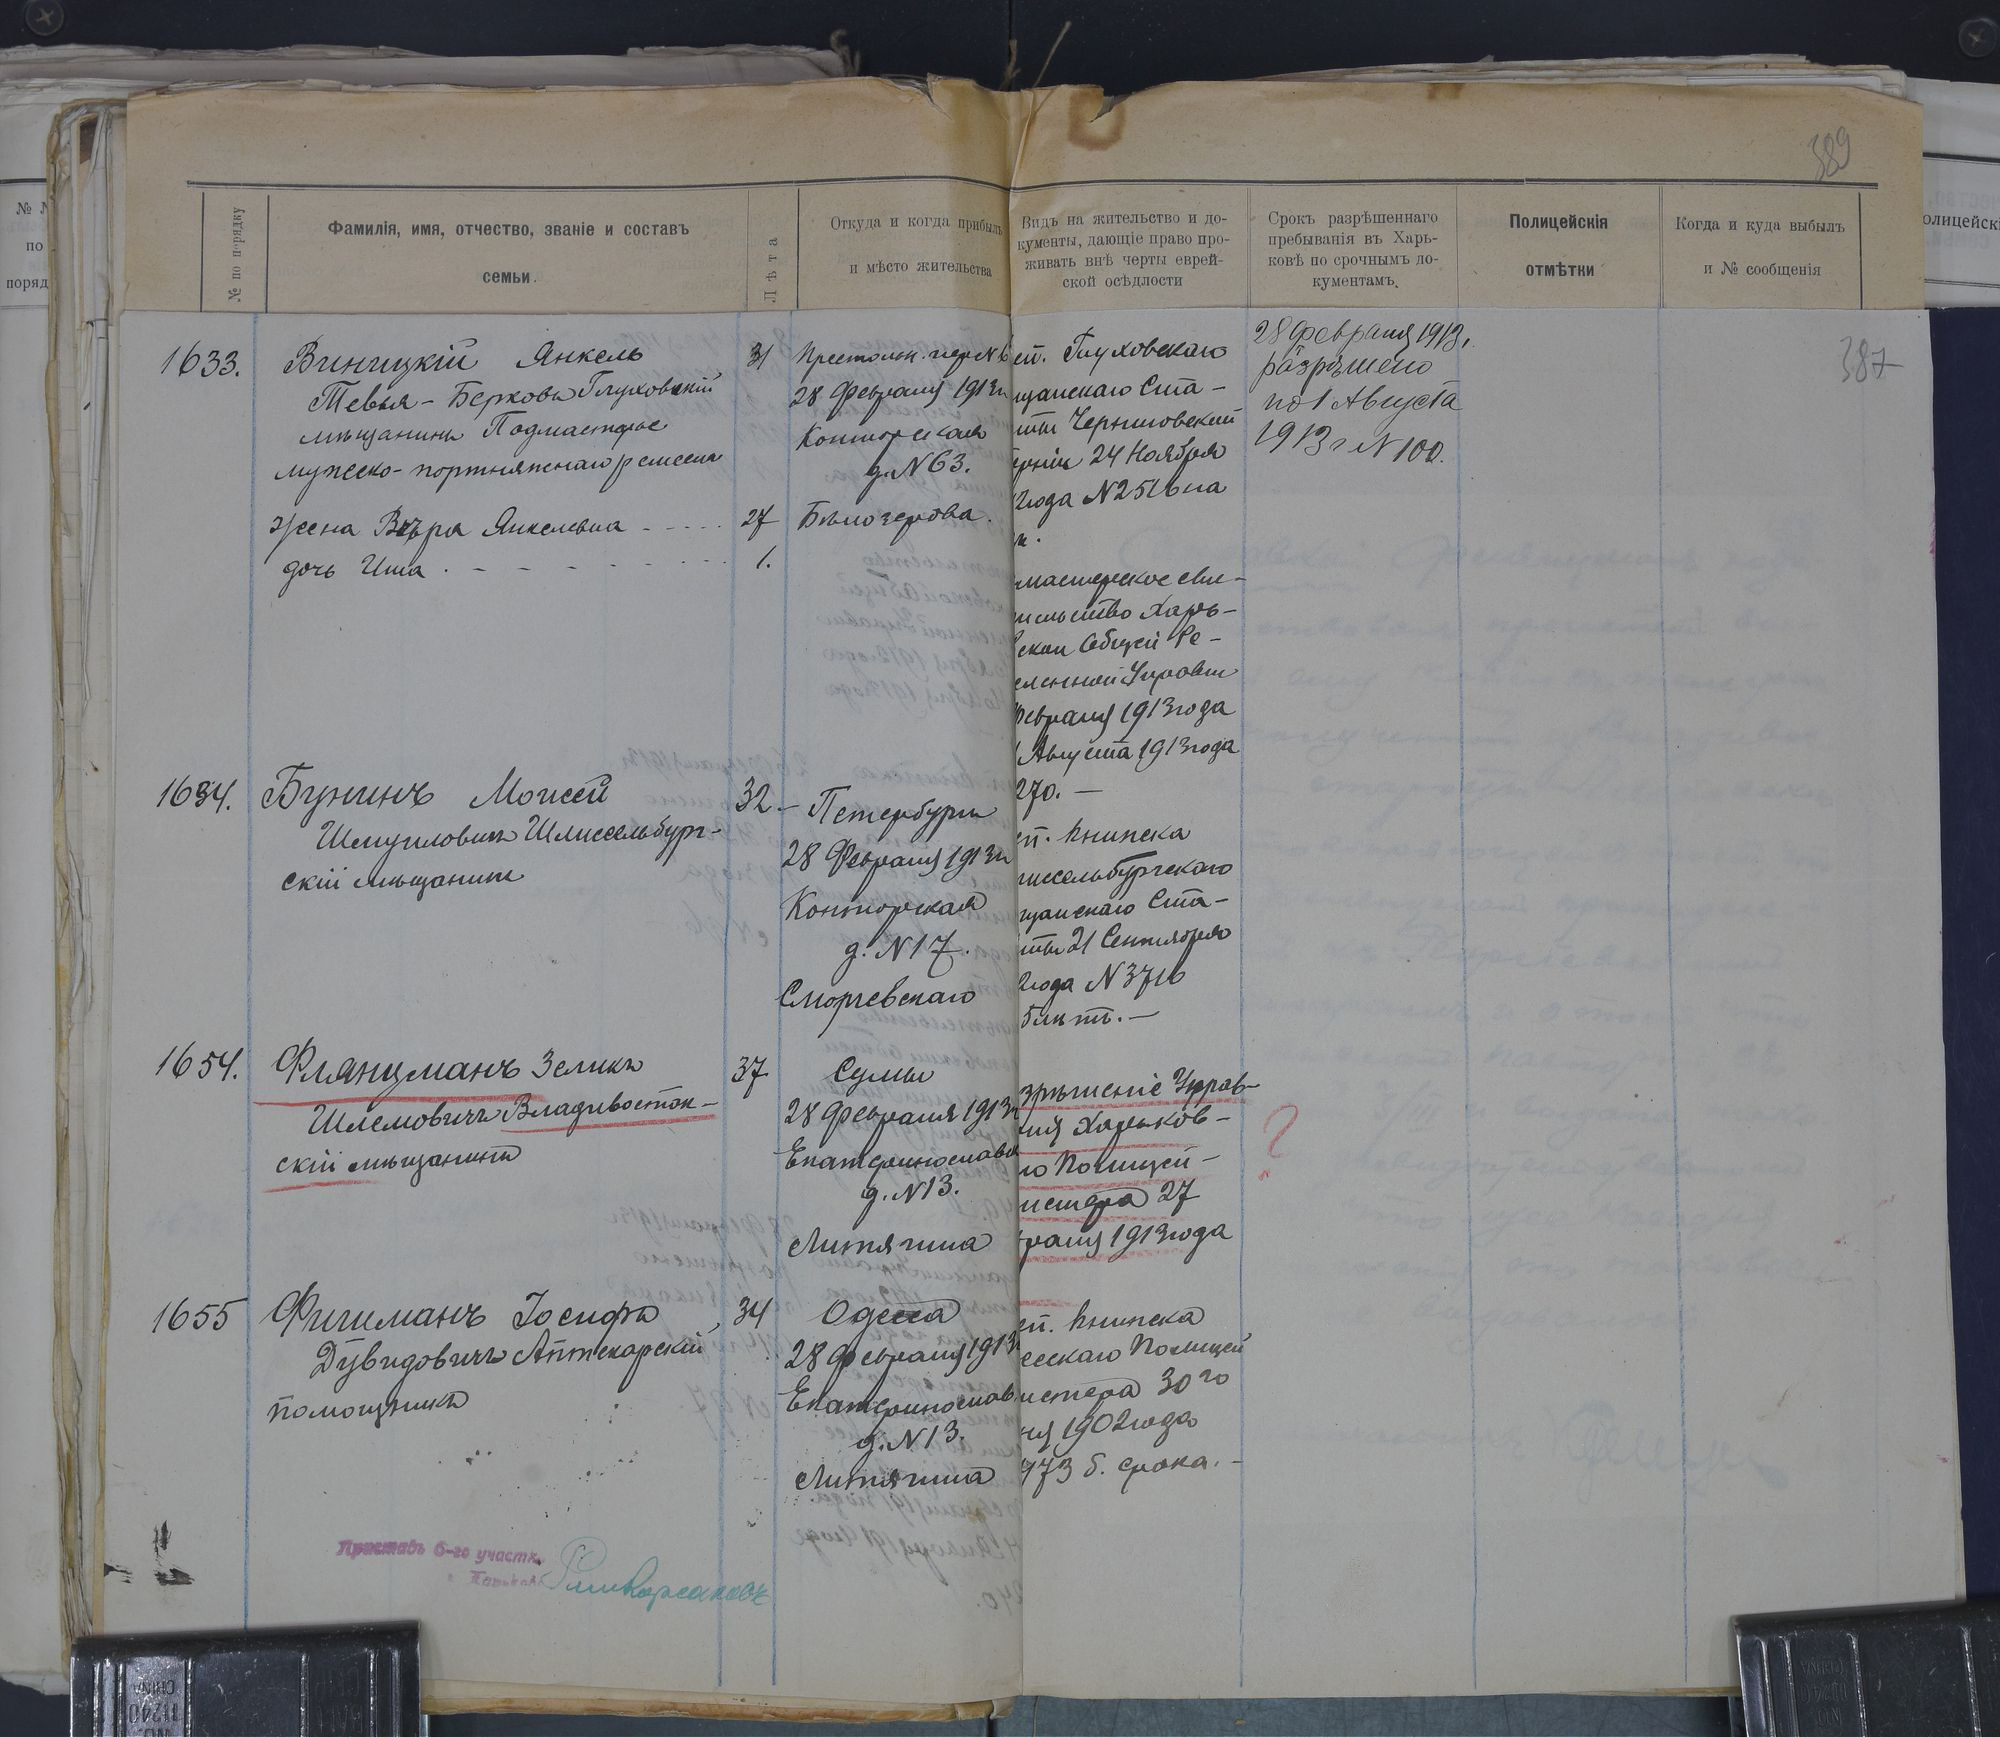 389
№ по порядку
Фамилія, имя, отчество, званіе и составъ
семьи.
Лѣта
Откуда и когда прибылъ
и мѣсто жительства
Видъ на жительство и до-
кументы, дающіе право про-
живать внѣ черты еврей-
ской осѣдлости
Срокъ разрѣшеннаго
пребыванія въ Харь-
ковѣ по срочнымъ до-
кументамъ.
Полицейскія
отмѣтки
Когда и куда выбылъ
и № сообщенія
387
1633.
Виницкій Янкель
Тевья-Берковъ Глуховскій
мѣщанинъ Подмастерье
мужеско-портняжнаго ремесла
жена Вѣра Янкелевна
дочь
31
27
1.
28 Февраля 1913 г
Конторская
д. N 63.
Бѣлоусова.
еп. Глуховскаго
щанскаго Ста-
Черниговской
24 Ноября
2 года N
мастерское сви-
тельство Харь-
ской Общей Ре-
сленной Управы
февраля 1913 года
1 Августа 1913 года
270. —
28 Февраля 1913,
разрѣшено
по 1 Августа
1913 г N 100.
1634.
Бунинъ Моисей
Шмуиловичъ Шлиссельбург-
скій мѣщанинъ
32
Петербургъ
28 Февраля 1913 г
Конторская
д. N 17.
еп. книжка
лиссельбургскаго
щанскаго Ста-
21 Сентября
2 года N 3716
1654.
Флянцманъ Зеликъ
Шлемовичъ Владивосток-
скій мѣщанинъ
37
Сумы
28 Февраля 1913 г
Екатеринославск
д. N 13.
Литягина
зрѣшеніе Управ-
Харьков-
го Полицей-
мейстера 27
враля 1913 года
?
1655
Фигиманъ Іосифъ
Дувидовичъ Аптекарскій
помощникъ
34
Одесса
28 февраля 1913 г
Екатеринослав
д. N 13.
Литягина
еп. книжка
есскаго Полицей
мейстера 30го
1902 года
473 б. срока. -
Приставъ 6-го участк.
г. Харькова